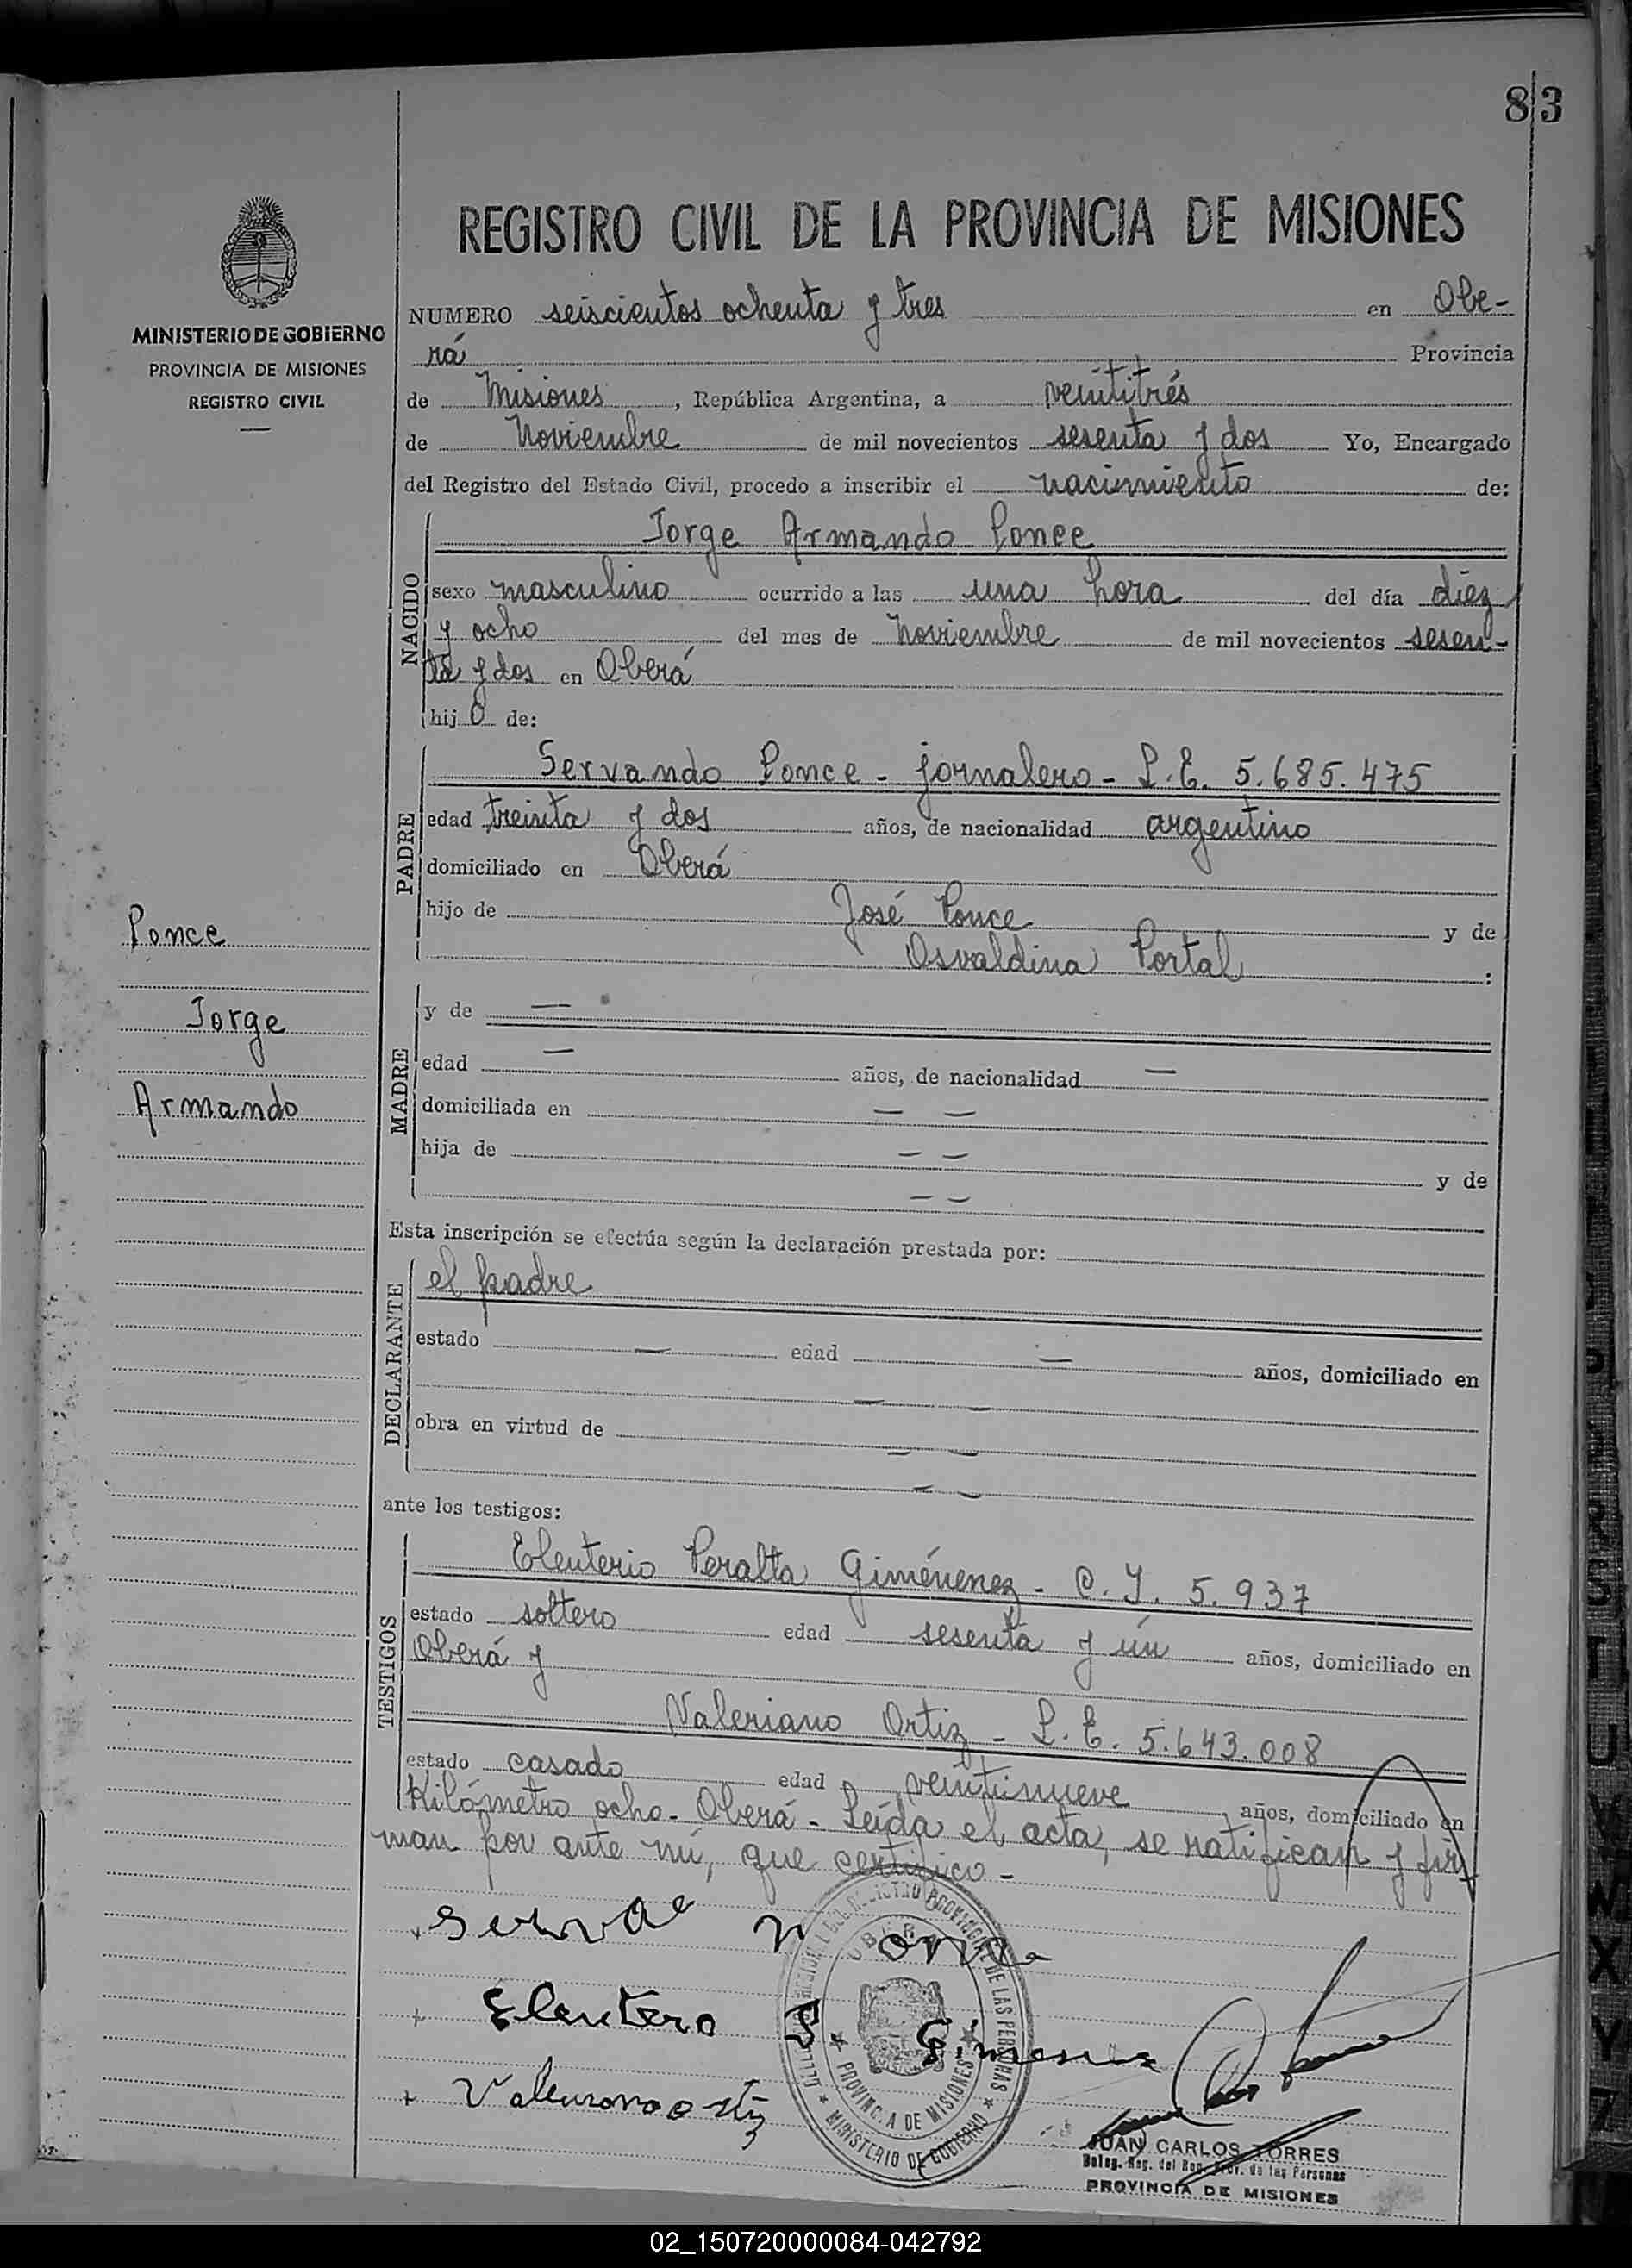 83
REGISTRO CIVIL DE LA PROVINCIA DE MISIONES
MINISTERIO DE GOBIERNO
PROVINCIA DE MISIONES
REGISTRO CIVIL
NUMERO seiscientos ochenta y tres en Obe-
rá Provincia
de Misiones, República Argentina, a veintitrés
de Noviembre de mil novecientos sesenta y dos Yo, Encargado
del Registro del Estado Civil, procedo a inscribir el nacimiento de:
NACIDO
Jorge Armando Ponce
sexo masculino ocurrido a las una hora del día diez
y ocho del mes de Noviembre de mil novecientos sesen-
ta y dos en Oberá
hijo de:
PADRE
Servando Ponce - jornalero - L.E. 5.685.475
edad treinta y dos años, de nacionalidad argentino
domiciliado en Oberá
hijo de José Ponce y de
Osvaldina Portal :
Ponce
Jorge
Armando
MADRE
y de —
edad — años, de nacionalidad —
domiciliada en — —
hija de — — y de
— —
Esta inscripción se efectúa según la declaración prestada por:
DECLARANTE
el padre
estado — edad — años, domiciliado en
— —
obra en virtud de — —
— —
ante los testigos:
TESTIGOS
Eleuterio Peralta Giménenez - C.I. 5.937
estado soltero edad sesenta y ún años, domiciliado en
Oberá y
Valeriano Ortiz - L.E. 5.643.008
estado casado edad veintinueve años, domiciliado en
Kilómetro ocho - Oberá - Leída el acta, se ratifican y fir
man por ante mí, que certifico -
Eleutero P. Gimenez
PROVINCIA DE MISIONES
MINISTERIO DE GOBIERNO
JUAN CARLOS TORRES
Deleg. Reg. del Reg. Prov. de las Personas
PROVINCIA DE MISIONES
02_150720000084-042792